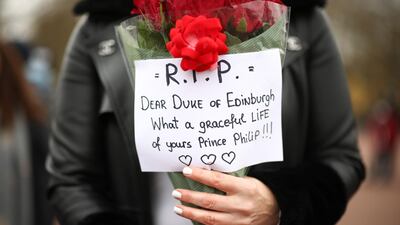 = R.I.P. =
DEAR DUKE OF EDINBURGH
WHAT A GRACEFUL LIFE
OF YOURS PRINCE PHILIP!!!
♡ ♡ ♡